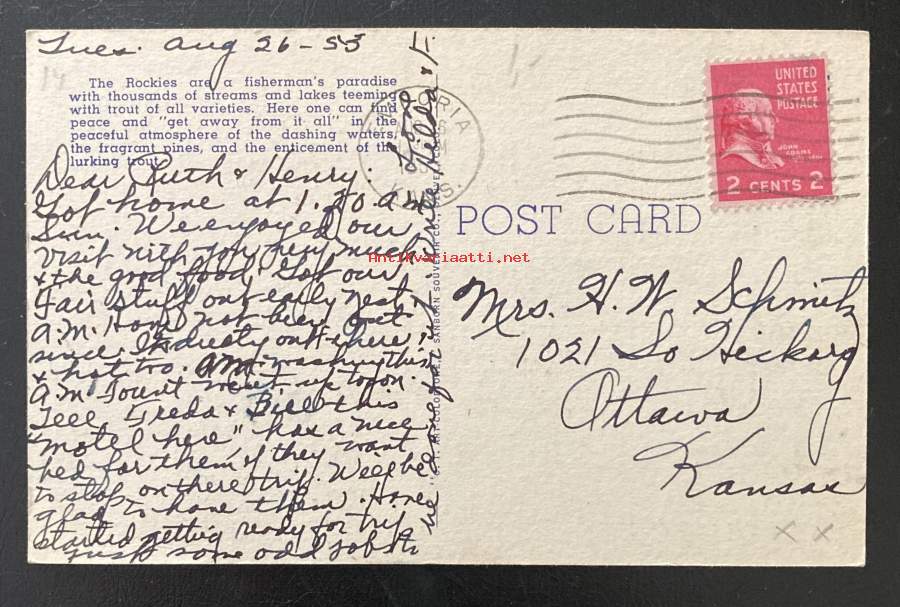 Tues. Aug 26-53
The Rockies are a fisherman's paradise
with thousands of streams and lakes teeming
with trout of all varieties. Here one can find
peace and "get away from it all" in the
peaceful atmosphere of the dashing waters,
the fragrant pines, and the enticement of the
lurking trout.
Dear Ruth & Henry:
Got home at 1.20 a.m.
Sun. We enjoyed our
visit with you very much
& the good food. Got our
Fair stuff out early next
A.M. Have not been out
since. Its dusty out here,
& hot too. Am washing this
A.M. Tourist went up town.
Tell Freda & Bill this
"Motel here" has a nice
bed for them if they want
to stop on there trip. We'll be
glad to have them.
started getting ready for trip
just some odd jobs to
Hilda
KANS.
POST CARD
Antikvariaatti.net
SANBORN SOUVENIR CO.
UNITED
STATES
POSTAGE
JOHN ADAMS
2 CENTS 2
Mrs. H. W. Schmitz
1021 So Hickory
Ottawa
Kansas
x x